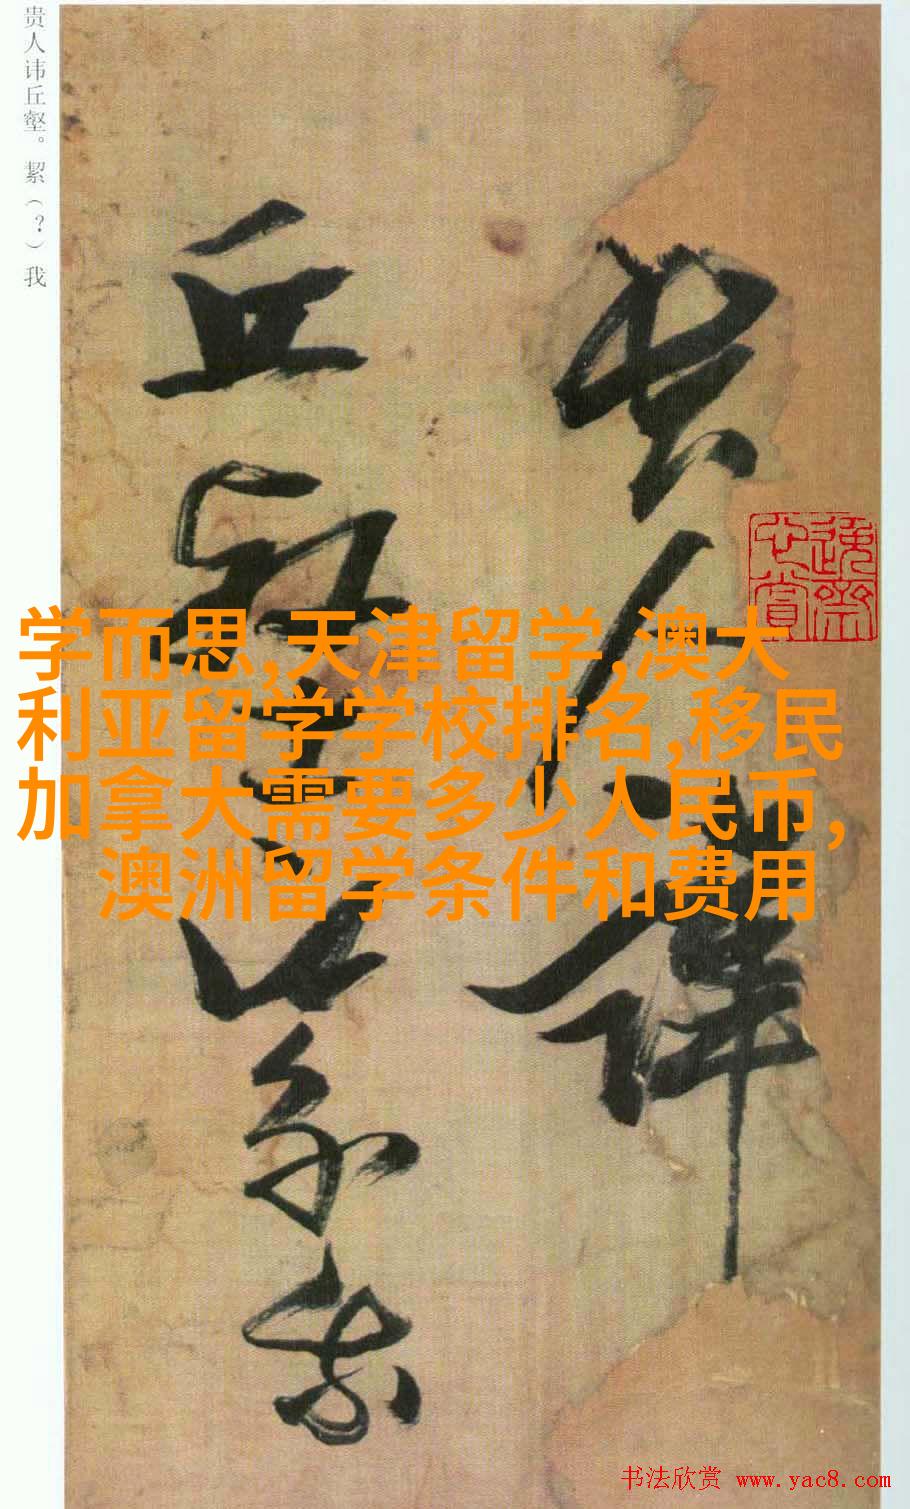 贵人讳丘壑。絜（？）我
贵人讳
丘壑
絜我
学而思,天津留学,澳大
利亚留学学校排名,移民
加拿大需要多少人民币,
澳洲留学条件和费用
书法欣赏 www.yac8.com